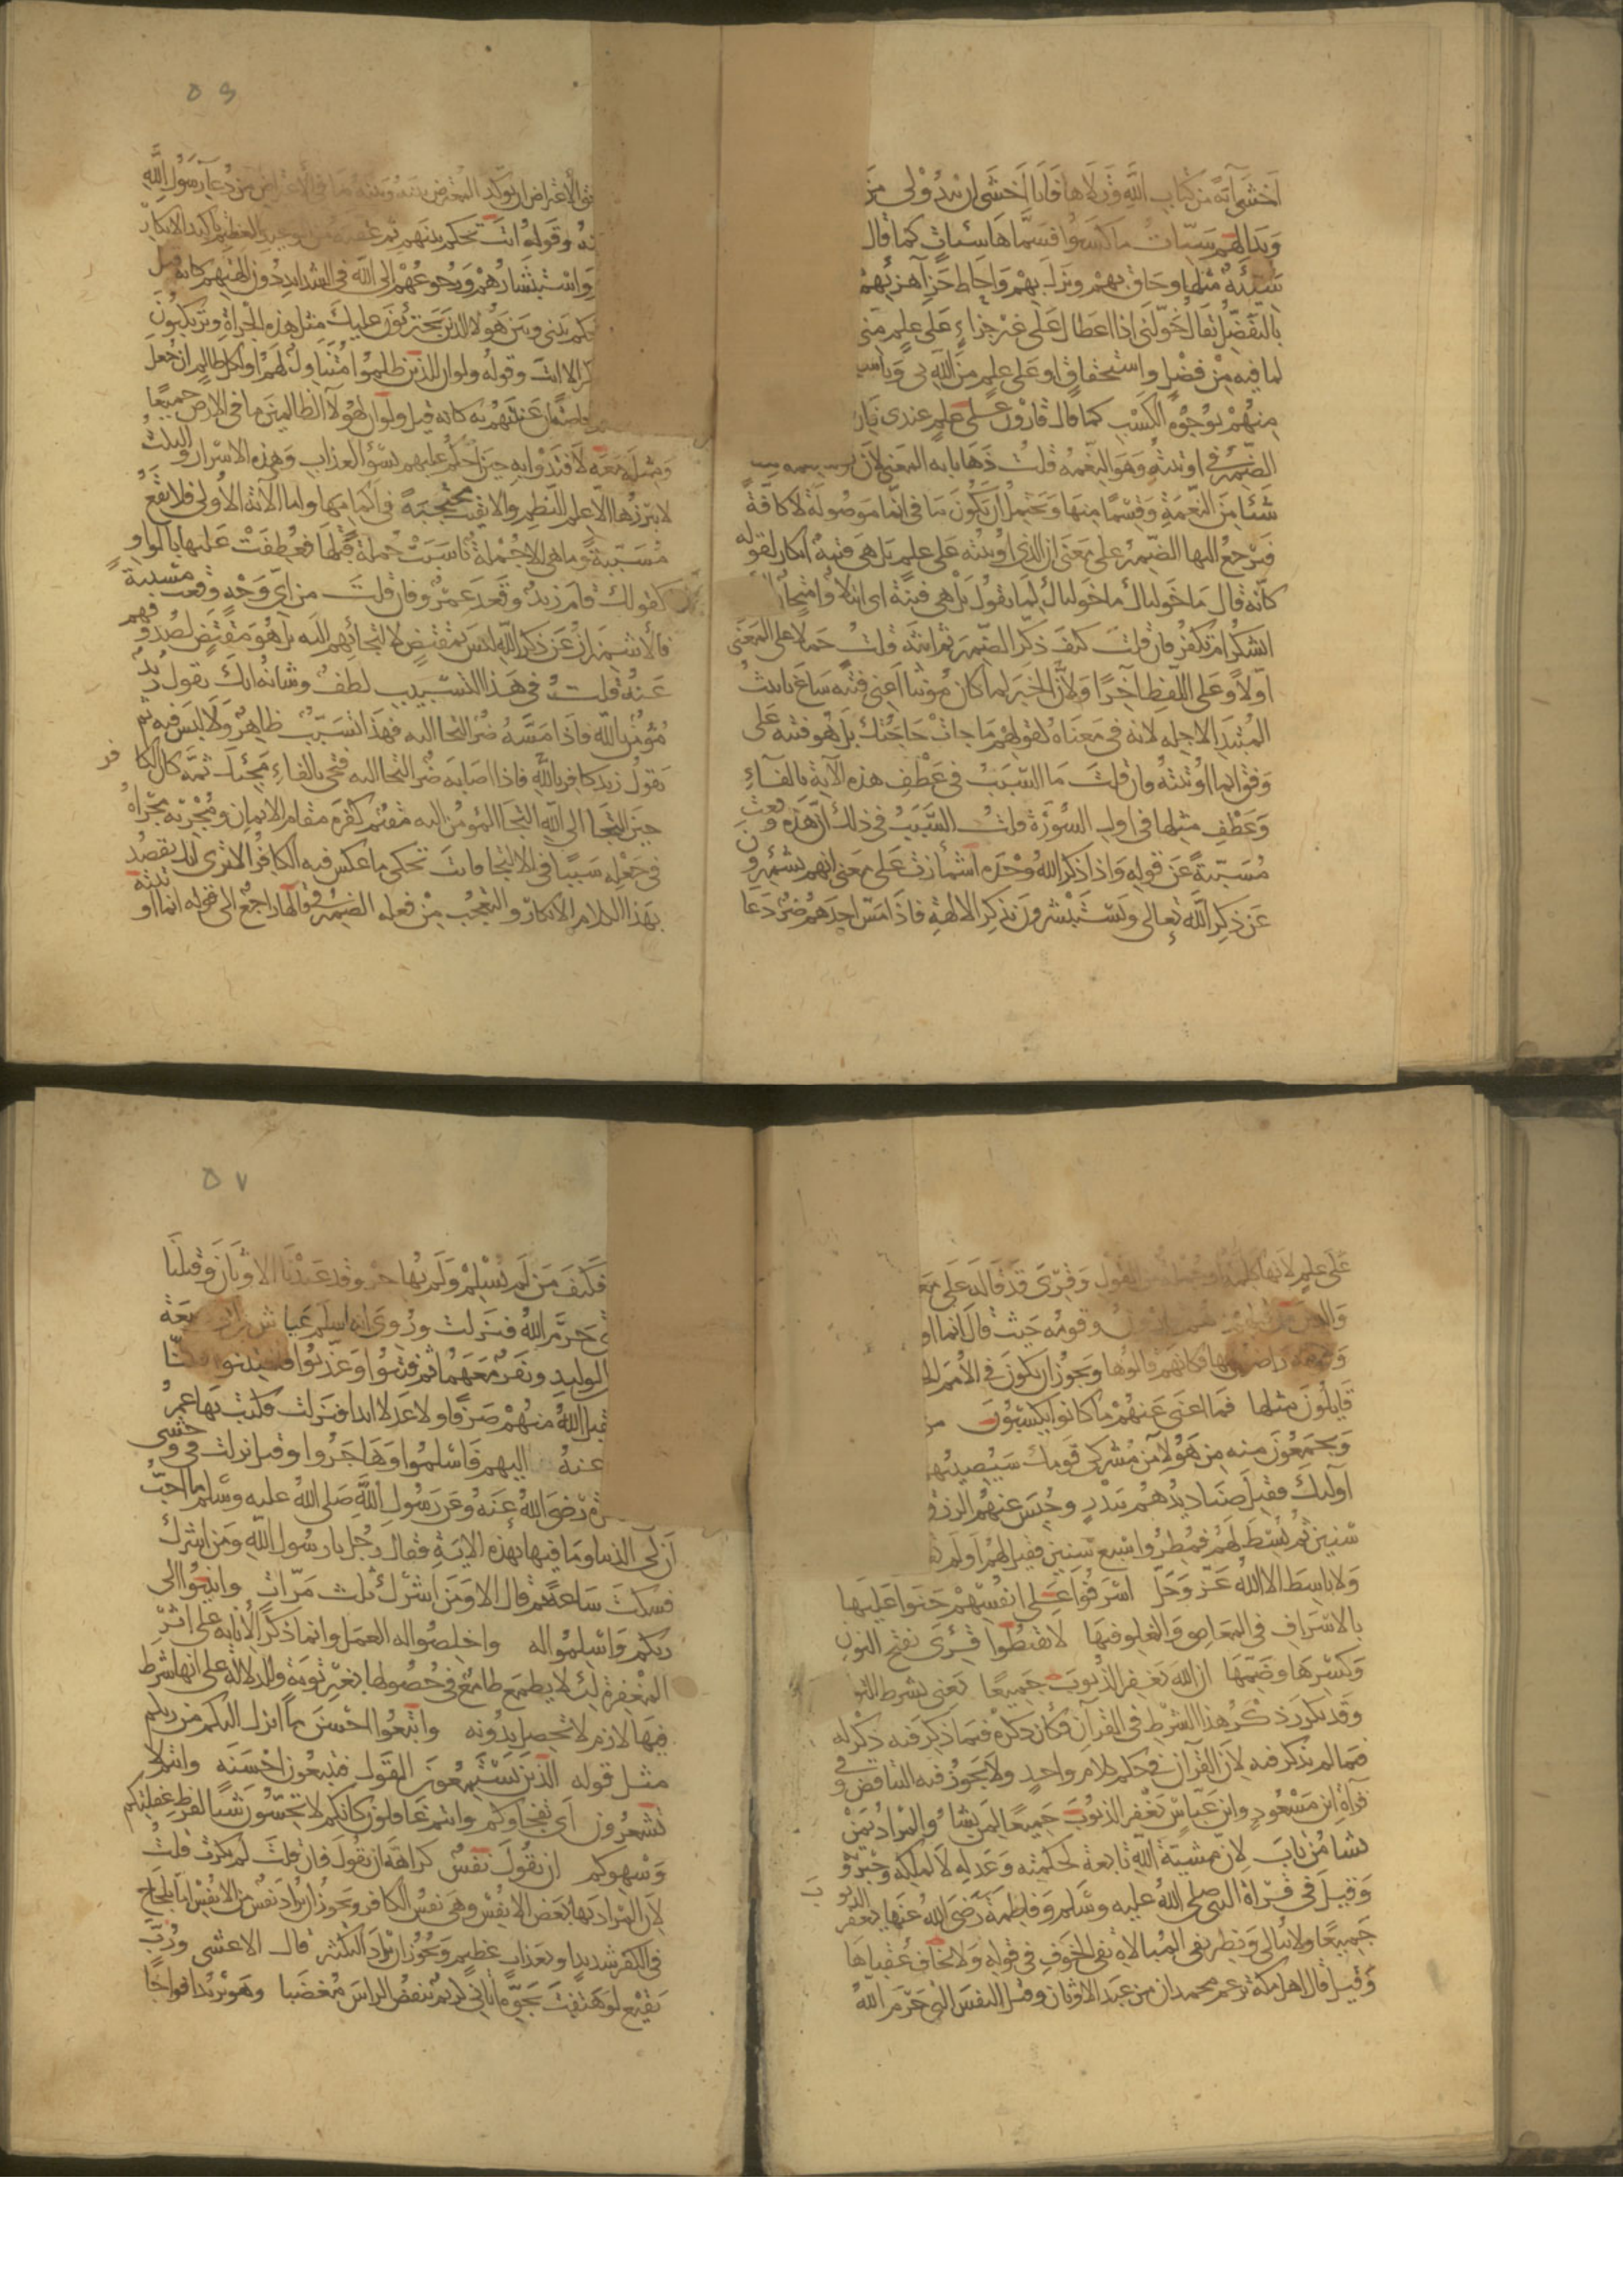 أخشى آية من كتاب الله وتلاها فأنا أخشى أن يبدو لي من
وبدا لهم سيئات ما كسبوا فسماها سيئات كما قال
سيئة مثلها وحاق بهم ونزل بهم وأحاط جزاء هزئهم
بالتفضل يقال خولني إذا أعطاك على غير جزاء على علم مني
لما فيه من فضل واستحقاق أو على علم من الله بي
منهم بوجوه الكسب كما قال قارون على علم عندي فإن
الضمير في أوتيته وهو النعمة قلت ذهابا به المعنى لأن
شيئا من النعمة وقسما منها ويحتمل أن يكون ما في إنما موصولة لا كافة
فيرجع إليها الضمير على معنى إن الذي أوتيته على علم بل هي فتنة إنكار لقوله
كأنه قال ما خولناك ما خولناك لما تقول بل هي فتنة أي ابتلاء وامتحان
أتشكر أم تكفر فإن قلت كيف ذكر الضمير ثم أنثه قلت حملا على المعنى
أولا وعلى اللفظ آخرا ولأن الخبر لما كان مؤنثا أعني فتنة ساغ تأنيث
المبتدإ لأجله لأنه في معناه كقولهم ما جاءت حاجتك بل هو فتنة على
وفق إنما أوتيته وإن قلت ما السبب في عطف هذه الآية بالفاء
وعطف مثلها في أول السورة قلت السبب في ذلك أن هذه وقعت
مسببة عن قوله وإذا ذكر الله وحده اشمأزت على معنى أنهم يشمئزون
عن ذكر الله تعالى ويستبشرون بذكر الآلهة فإذا مس أحدهم ضر دعا
٥٦
حق الاعتراض أن يؤكد المعترض بينه وبينه ما في الاعتراض من دعاء رسول الله
ربه وقوله أنت تحكم بينهم ثم عقبه من الوعيد العظيم تأكيد لإنكار
واستبشارهم ورجوعهم إلى الله في الشدايد دون آلهتهم كأنه قيل
يحكم بيني وبين هؤلاء الذين يجترئون عليك مثل هذه الجراءة ويرتكبون
إلا أنت وقوله ولو أن للذين ظلموا متناول لهم أو لكل ظالم إن جعل
عنيتهم به كأنه قيل ولو أن لهؤلاء الظالمين ما في الأرض جميعا
ومثله معه لافتدوا به حين أحكم عليهم بسوء العذاب وهذه الأسرار والنكت
لا يبرزها إلا علم النظم وإلا بقيت محتجبة في أكمامها وأما الآية الأولى فلا تقع
مسببة وما هي إلا جملة ناسبت جملة قبلها فعطفت عليها بالواو
كقولك قام زيد وقعد عمرو فإن قلت من أي وجه وقعت مسببة
فالاشمئزاز عن ذكر الله ليس بمقتض لالتجائهم إليه بل هو مقتض لصدوفهم
عنه قلت في هذا التسبيب لطف وشأنه أنك تقول زيد
مؤمن بالله فإذا مسه ضر التجأ إليه فهذا تسبيب ظاهر ولا لبس فيه ثم
تقول زيد كافر بالله فإذا أصابه ضر التجأ إليه فتجيء بالفاء مجيئك ثمة كأن الكافر
حين التجأ إلى الله التجاء المؤمن إليه مقيم كفره مقام الإيمان ومجريه مجراه
في جعله سببا في الالتجاء فأنت تحكي ما عكس فيه الكافر ألا ترى أنك تقصد
بهذا الكلام الإنكار والتعجب من فعله الضمير في قالها راجع إلى قوله إنما أوتيته
على علم لأنها كلمة وجملة من القول وقرئ قد قاله على معنى
والذين من قبلهم هم قارون وقومه حيث قال إنما أو
وقومه راضون بها فكأنهم قالوها ويجوز أن يكون في الأمم
قايلون مثلها فما أغنى عنهم ما كانوا يكسبون من
ويجمعون منه من هؤلاء من مشركي قومك سيصيبهم
أولئك فقتل صناديدهم ببدر وحبس عنهم الرزق
سنين ثم بسط لهم فمطروا سبع سنين فقيل لهم أولم
ولا باسط إلا الله عز وجل أسرفوا على أنفسهم جنوا عليها
بالإسراف في المعاصي والغلو فيها لا تقنطوا قرئ بفتح النون
وكسرها وضمها إن الله يغفر الذنوب جميعا يعني بشرط التو
وقد تكرر ذكر هذا الشرط في القرآن فكان ذكره فيما ذكر فيه ذكرا له
فيما لم يذكر فيه لأن القرآن في حكم كلام واحد ولا يجوز فيه التناقض وفي
قراءة ابن مسعود وابن عباس يغفر الذنوب جميعا لمن يشاء والمراد بمن
يشاء من تاب لأن مشيئة الله تابعة لحكمته وعدله لا لملكه وجبروته
وقيل في قراءة النبي صلى الله عليه وسلم وفاطمة رضي الله عنها يغفر الذنوب
جميعا ولا يبالي ونظير نفي المبالاة نفي الخوف في قوله ولا يخاف عقباها
وقيل قال أهل مكة يزعم محمد أن من عبد الأوثان وقتل النفس التي حرم الله
٥٧
فكيف من لم يسلم ولم يهاجر وقد عبدنا الأوثان وقتلنا
حرم الله فنزلت وروي أنه أسلم عياش بن أبي ربيعة
الوليد ونفر معهما ثم فتنوا وعذبوا فافتتنوا فكنا
يقبل الله منهم صرفا ولا عدلا أبدا فنزلت فكتب بها عمر
عنه إليهم فأسلموا وهاجروا وقيل نزلت في وحشي
رضي الله عنه وعن رسول الله صلى الله عليه وسلم ما أحب
أن لي الدنيا وما فيها بهذه الآية فقال رجل يا رسول الله ومن أشرك
فسكت ساعة ثم قال ألا ومن أشرك ثلث مرات وأنيبوا إلى
ربكم وأسلموا له وأخلصوا له العمل وإنما ذكر الإنابة على أثر
المغفرة لئلا يطمع طامع في حصولها بغير توبة وللدلالة على أنها شرط
فيها لازم لا تحصل بدونه واتبعوا أحسن ما أنزل إليكم من ربكم
مثل قوله الذين يستمعون القول فيتبعون أحسنه وأنتم لا
تشعرون أي يفجأكم وأنتم غافلون كأنكم لا تحسون شيئا لفرط غفلتكم
وسهوكم أن تقول نفس كراهة أن تقول فإن قلت لم نكرت قلت
لأن المراد بها بعض الأنفس وهي نفس الكافر ويجوز أن يراد نفس من الأنفس إما بلجاج
في الكفر شديد أو بعذاب عظيم ويجوز أن يراد التكثير قال الأعشى ورب
بقيع لو هتفت بجوه أتاني كريم ينفض الراس مغضبا وهو يريد أفواجا